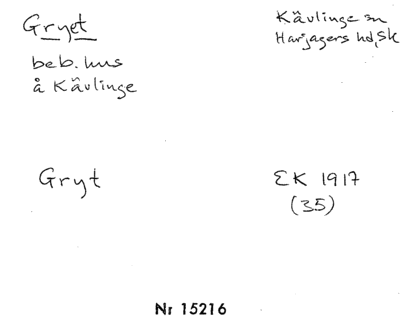 Gryet
Kävlinge sn
Harjagers hd, Sk
beb. hus
å Kävlinge
Gryt
EK 1917
(35)
Nr 15216